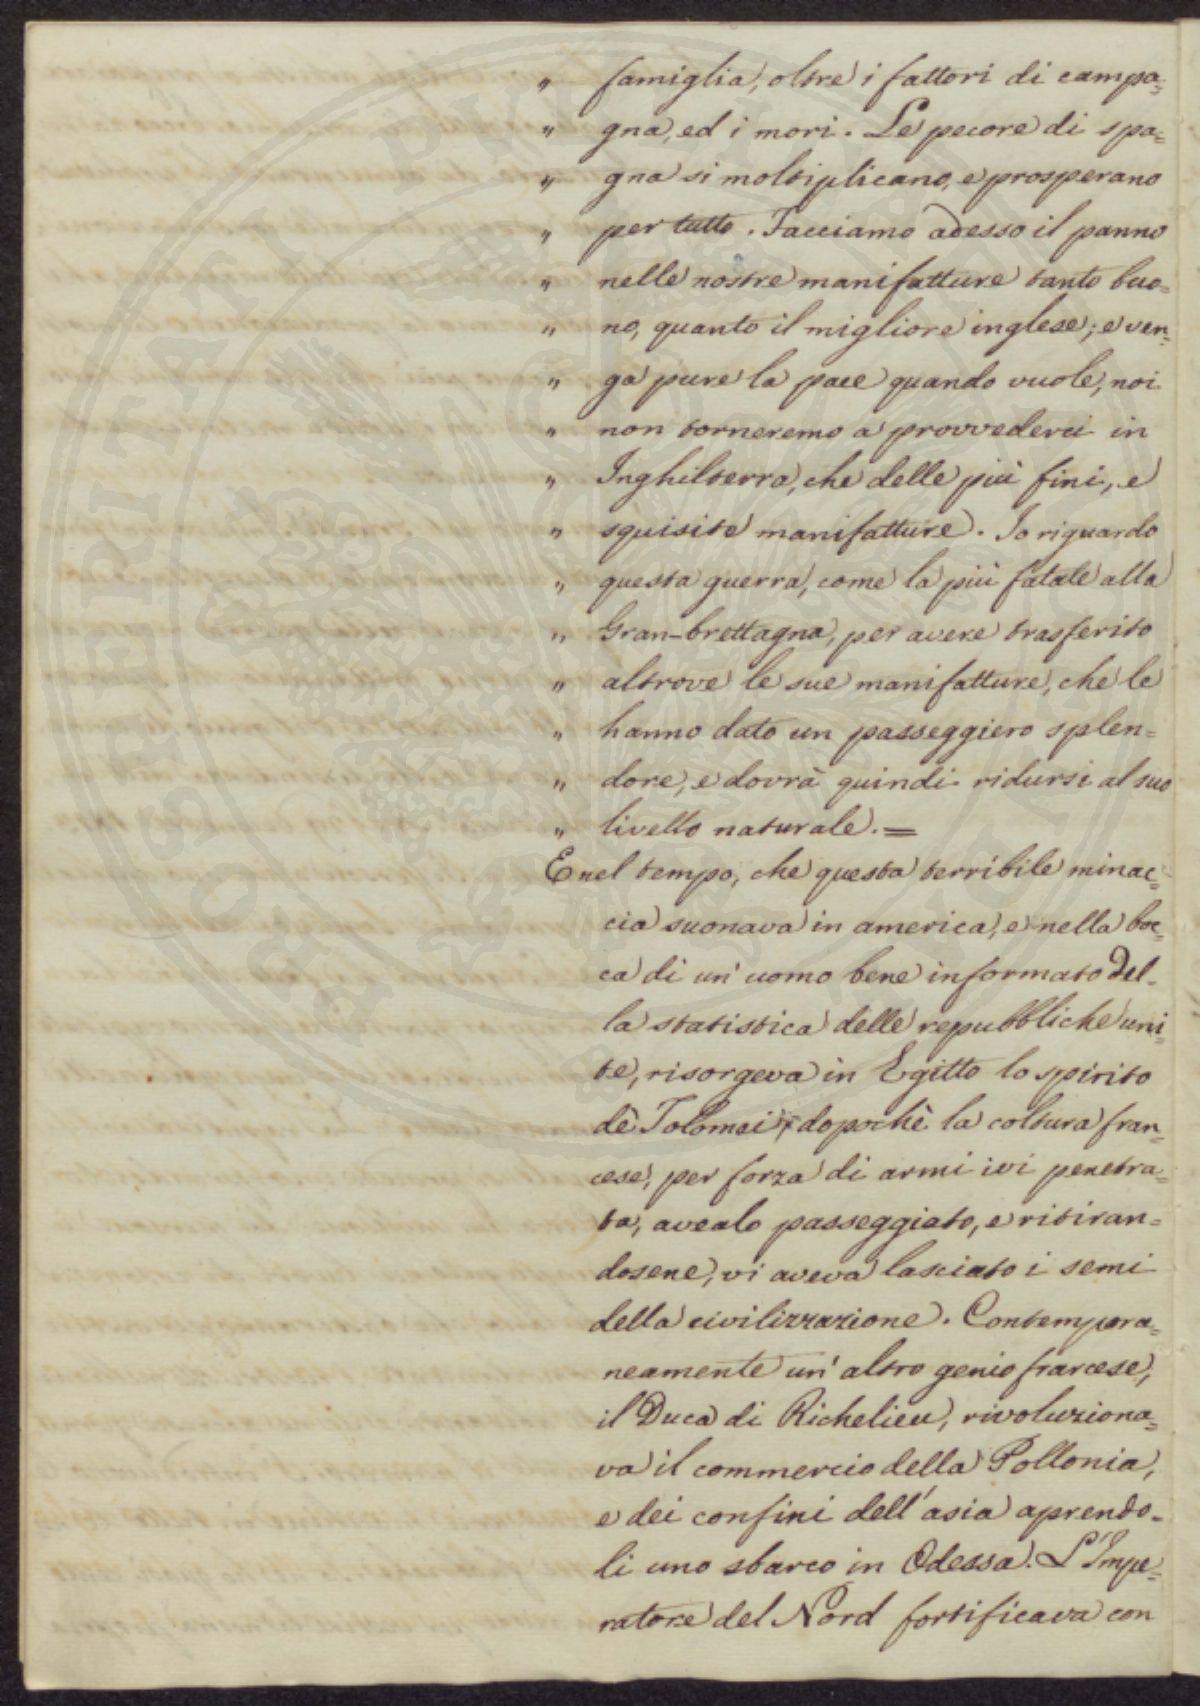 " famiglia, oltre i fattori di campa=
" gna, ed i mori. Le pecore di spa=
" gna si moltiplicano, e prosperano
" per tutto. Facciamo adesso il panno
" nelle nostre manifatture tanto buo=
" no, quanto il migliore inglese; e ven=
" ga pure la pace quando vuole, noi
" non torneremo a provvederci in
" Inghilterra, che delle più fini, e
" squisite manifatture. Io riguardo
" questa guerra, come la più fatale alla
" Gran-brettagna, per avere trasferito
" altrove le sue manifatture, che le
" hanno dato un passeggiero splen=
" dore, e dovrà quindi ridursi al suo
" livello naturale.=
E nel tempo, che questa terribile minac=
cia suonava in america, e nella boc=
ca di un' uomo bene informato del-
la statistica delle repubbliche uni=
te, risorgeva in Egitto lo spirito
dè Tolomei, dopochè la coltura fran=
cese, per forza di armi ivi penetra=
ta, avealo passeggiato, e ritiran=
dosene, vi aveva lasciato i semi
della civilizzazione. Contempora=
neamente un' altro genio francese,
il Duca di Richelieu, rivoluziona=
va il commercio della Pollonia,
e dei confini dell' asia aprendo-
li uno sbarco in Odessa. L'Impe=
ratore del Nord fortificava con
POPULI